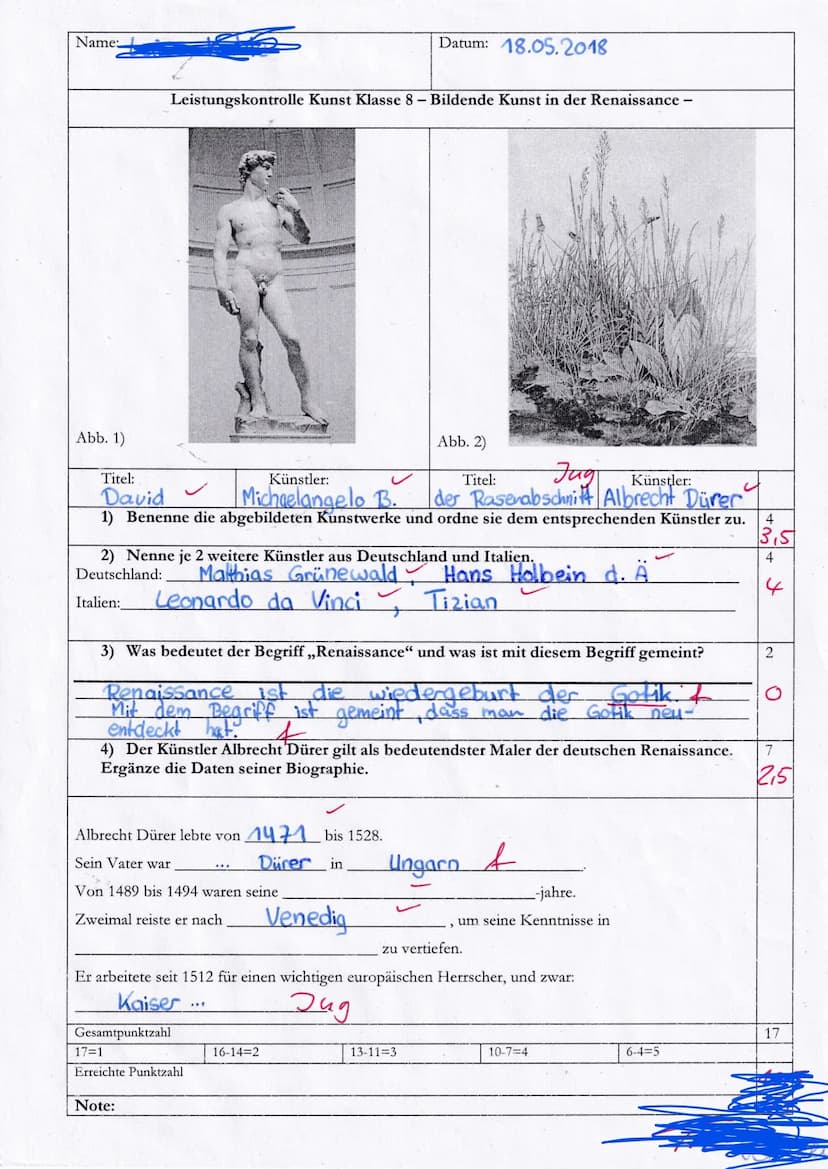 Name: Datum: 18.05.2018
Leistungskontrolle Kunst Klasse 8 – Bildende Kunst in der Renaissance –
Abb. 1) Abb. 2)
Titel: Künstler: Titel: Jug Künstler:
David Michaelangelo B. der Rasenabschnitt Albrecht Dürer
1) Benenne die abgebildeten Kunstwerke und ordne sie dem entsprechenden Künstler zu. 4
3,5
2) Nenne je 2 weitere Künstler aus Deutschland und Italien. 4
Deutschland: Matthias Grünewald, Hans Holbein d. Ä
4
Italien: Leonardo da Vinci, Tizian
3) Was bedeutet der Begriff „Renaissance“ und was ist mit diesem Begriff gemeint? 2
Renaissance ist die wiedergeburt der Gotik. f 0
Mit dem Begriff ist gemeint, dass man die Gotik neu-
entdeckt hat. f
4) Der Künstler Albrecht Dürer gilt als bedeutendster Maler der deutschen Renaissance. 7
Ergänze die Daten seiner Biographie. 2,5
Albrecht Dürer lebte von 1471 bis 1528.
Sein Vater war ... Dürer in Ungarn f.
Von 1489 bis 1494 waren seine -jahre.
Zweimal reiste er nach Venedig, um seine Kenntnisse in
zu vertiefen.
Er arbeitete seit 1512 für einen wichtigen europäischen Herrscher, und zwar:
Kaiser ... Jug
Gesamtpunktzahl 17
17=1 16-14=2 13-11=3 10-7=4 6-4=5
Erreichte Punktzahl
Note: